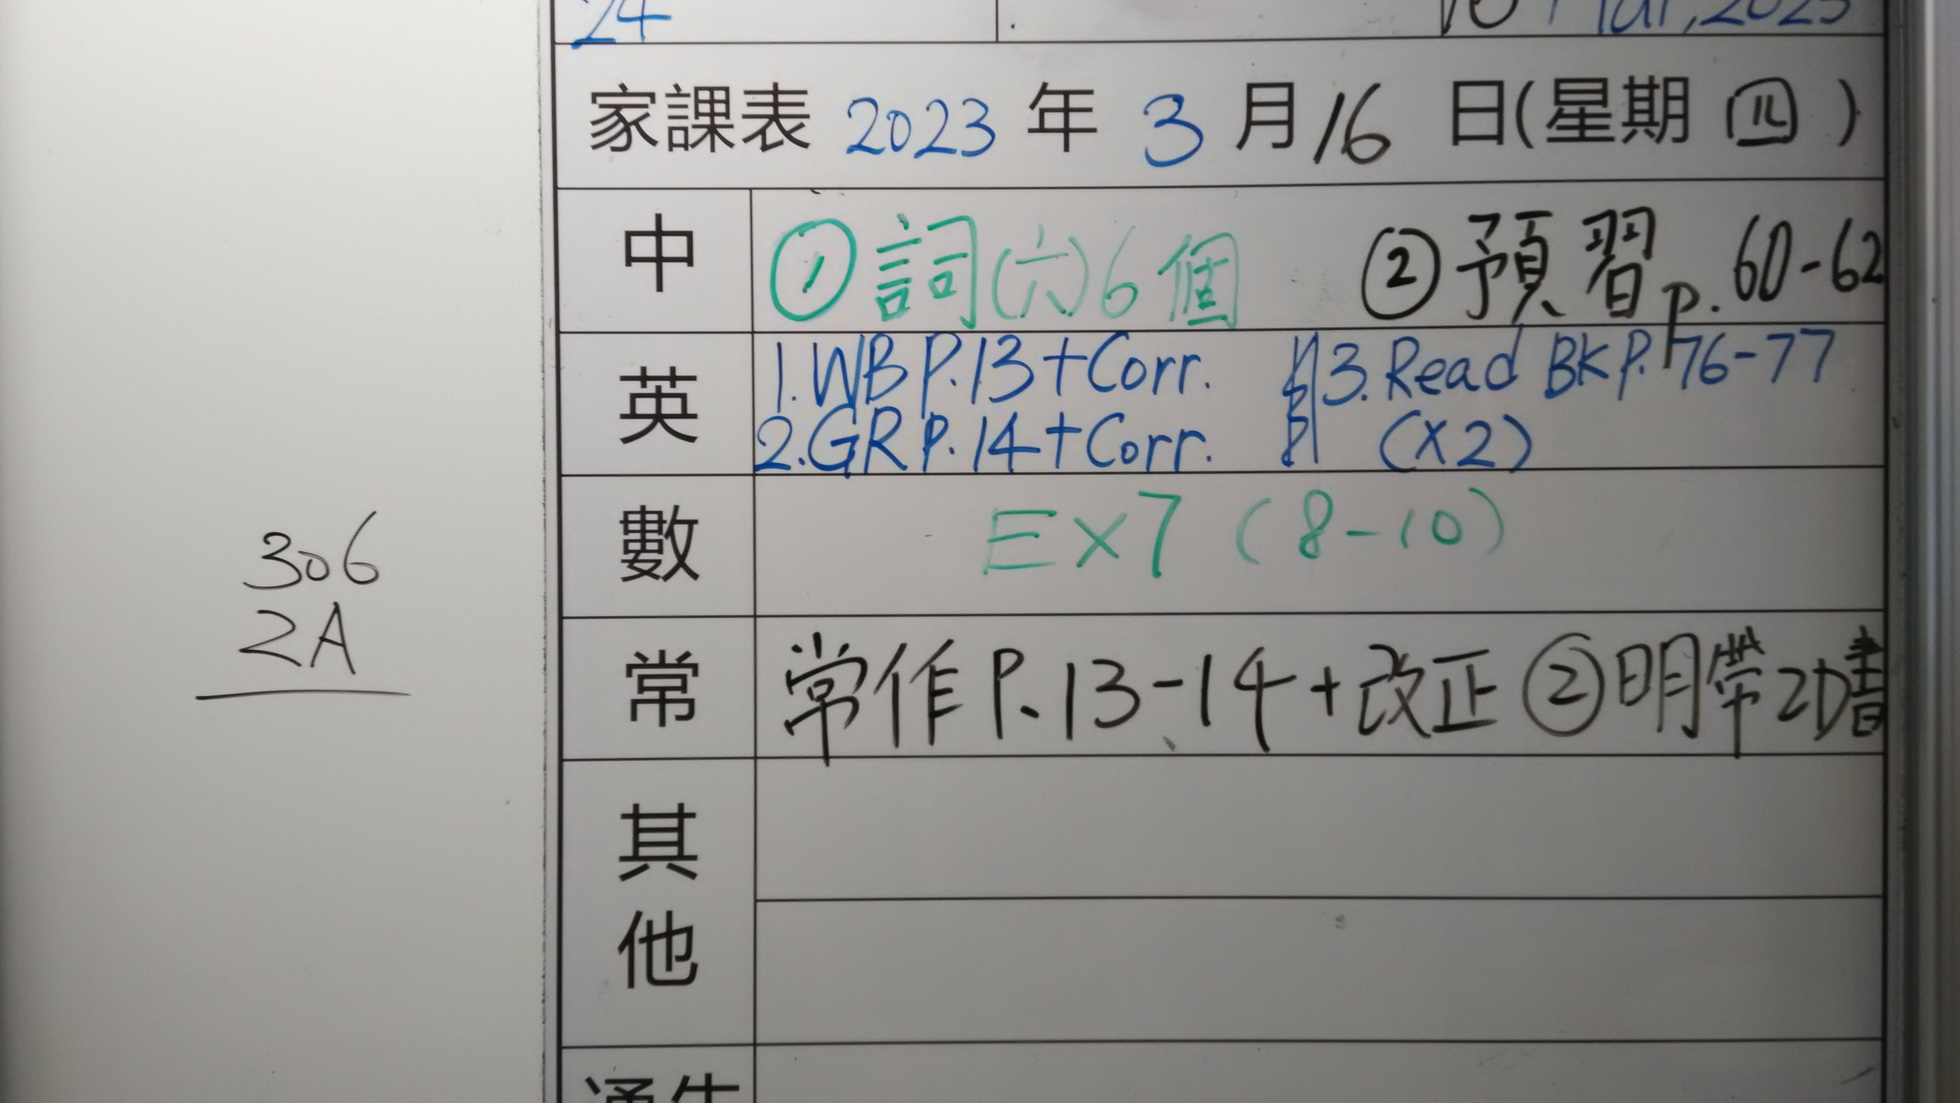 24
16 Mar, 2023
家課表 2023 年 3 月 16 日(星期 四 )
中 ① 詞(六)6個 ② 預習 p. 60-62
英 1. WB P.13 + Corr. 3. Read BK P. 76-77
2. GR P. 14 + Corr. (x2)
數 Ex7 (8-10)
306
2A
常 常作 P. 13-14 + 改正 ② 明帶2D書
其
他
通告